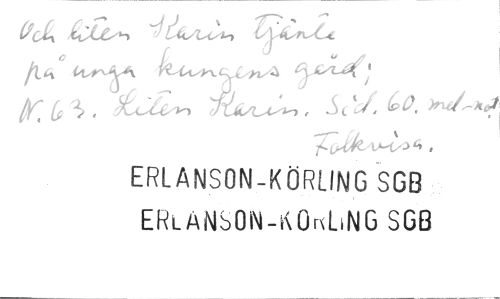 Och liten Karin tjänte
på unga kungens gård;
N. 63. Liten Karin. Sid. 60. mel-not
Folkvisa.
ERLANSON-KÖRLING SGB
ERLANSON-KÖRLING SGB